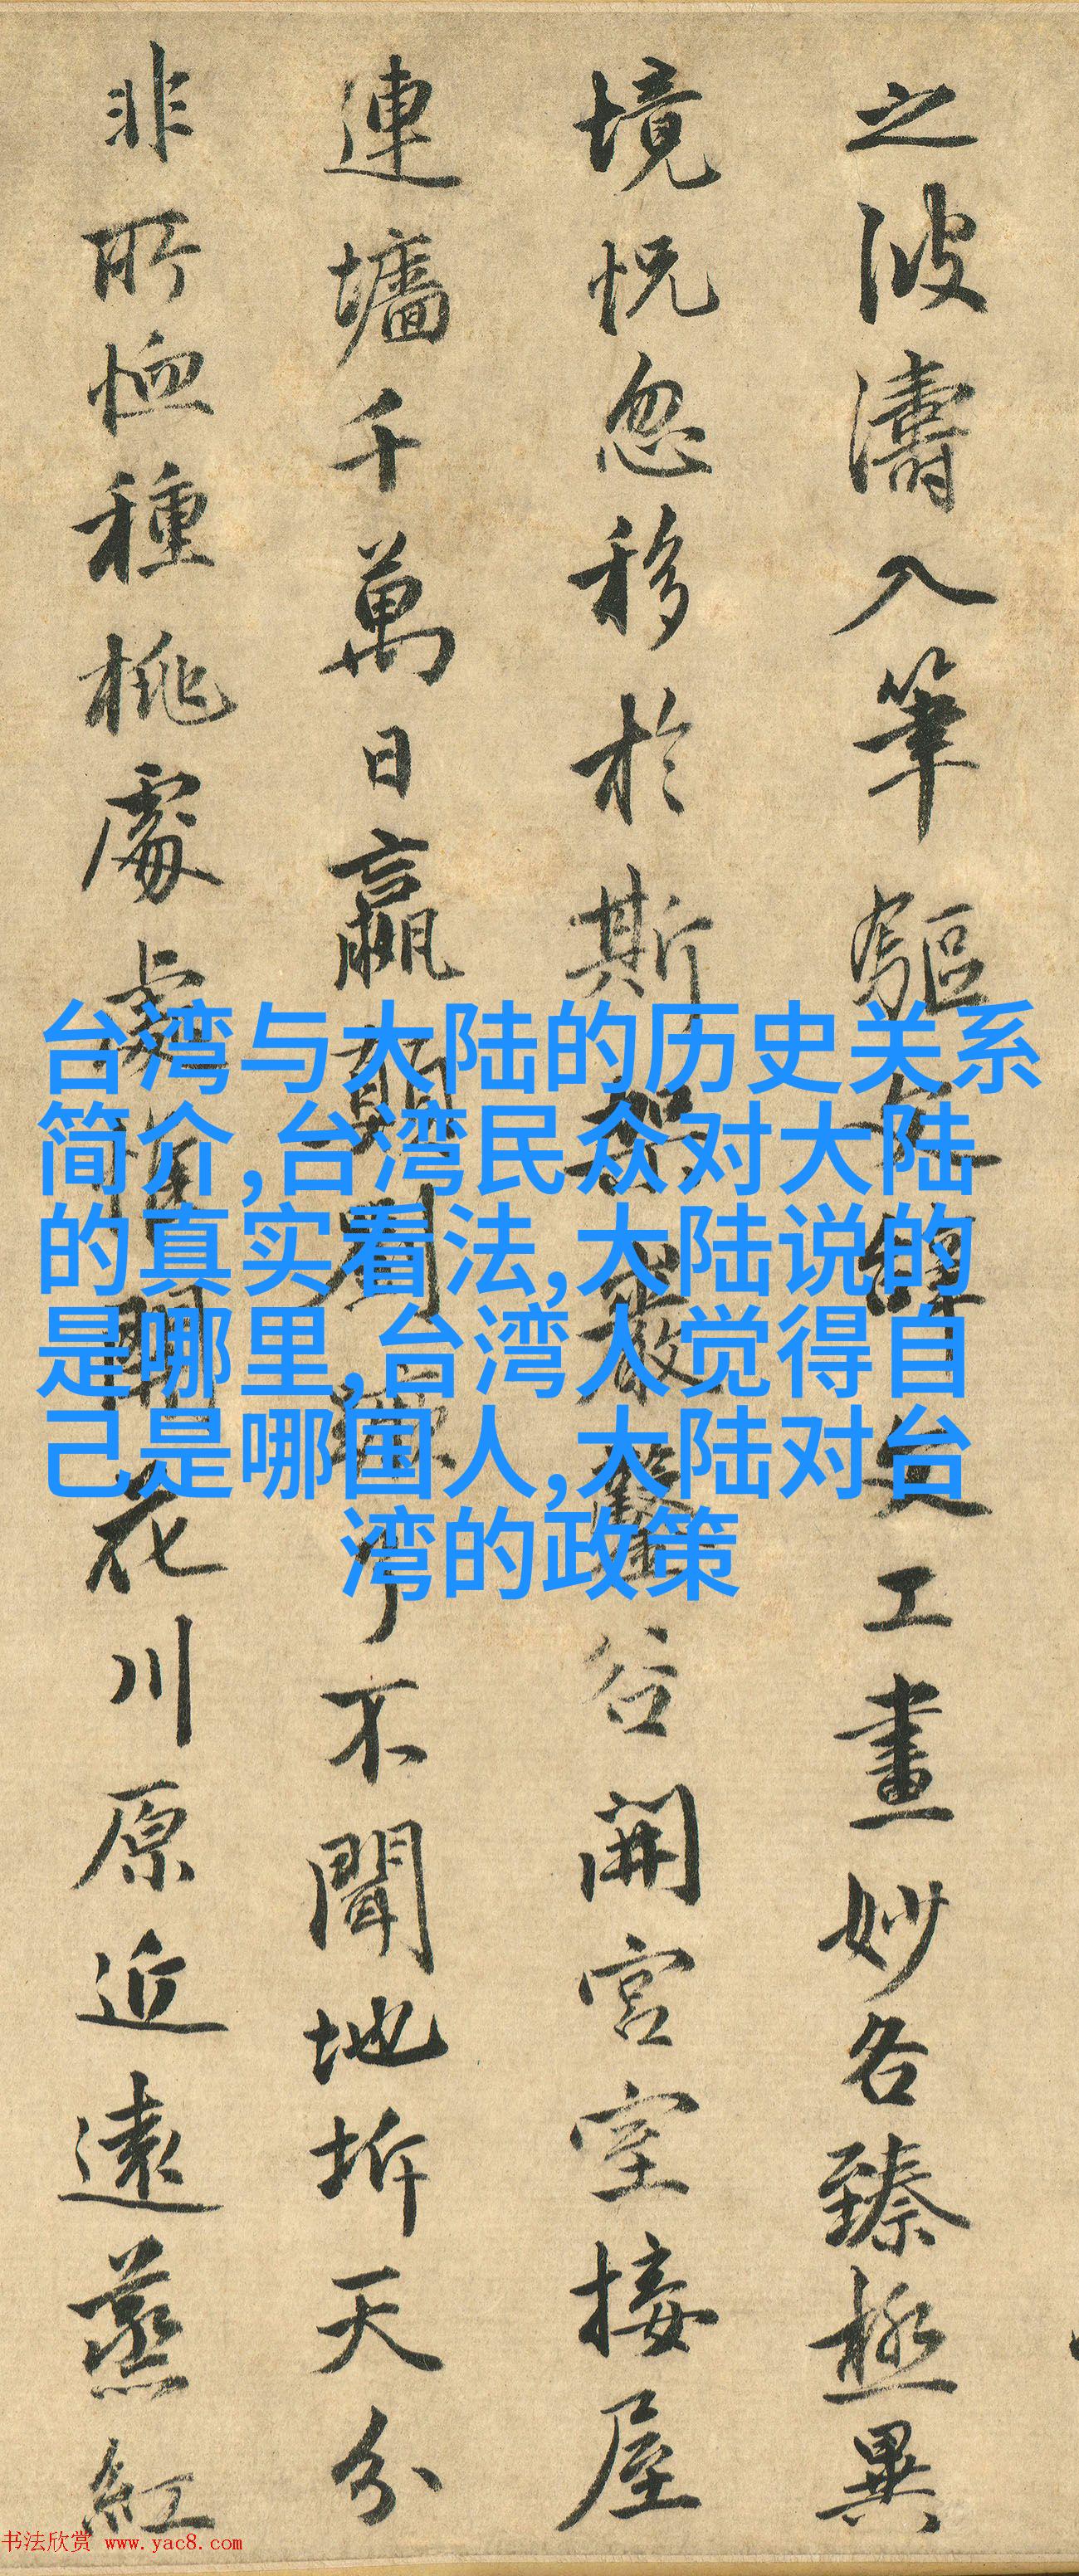 之波濤入筆驅文辭文工畫妙各臻極異
境怳忽移於斯架巖鑿谷開宮室接屋
連墻千萬日嬴顛劉蹶了不聞地坼天分
非所恤種桃處處惟開花川原近遠蒸紅
台湾与大陆的历史关系
简介,台湾民众对大陆
的真实看法,大陆说的
是哪里,台湾人觉得自
己是哪国人,大陆对台
湾的政策
书法欣赏 www.yac8.com